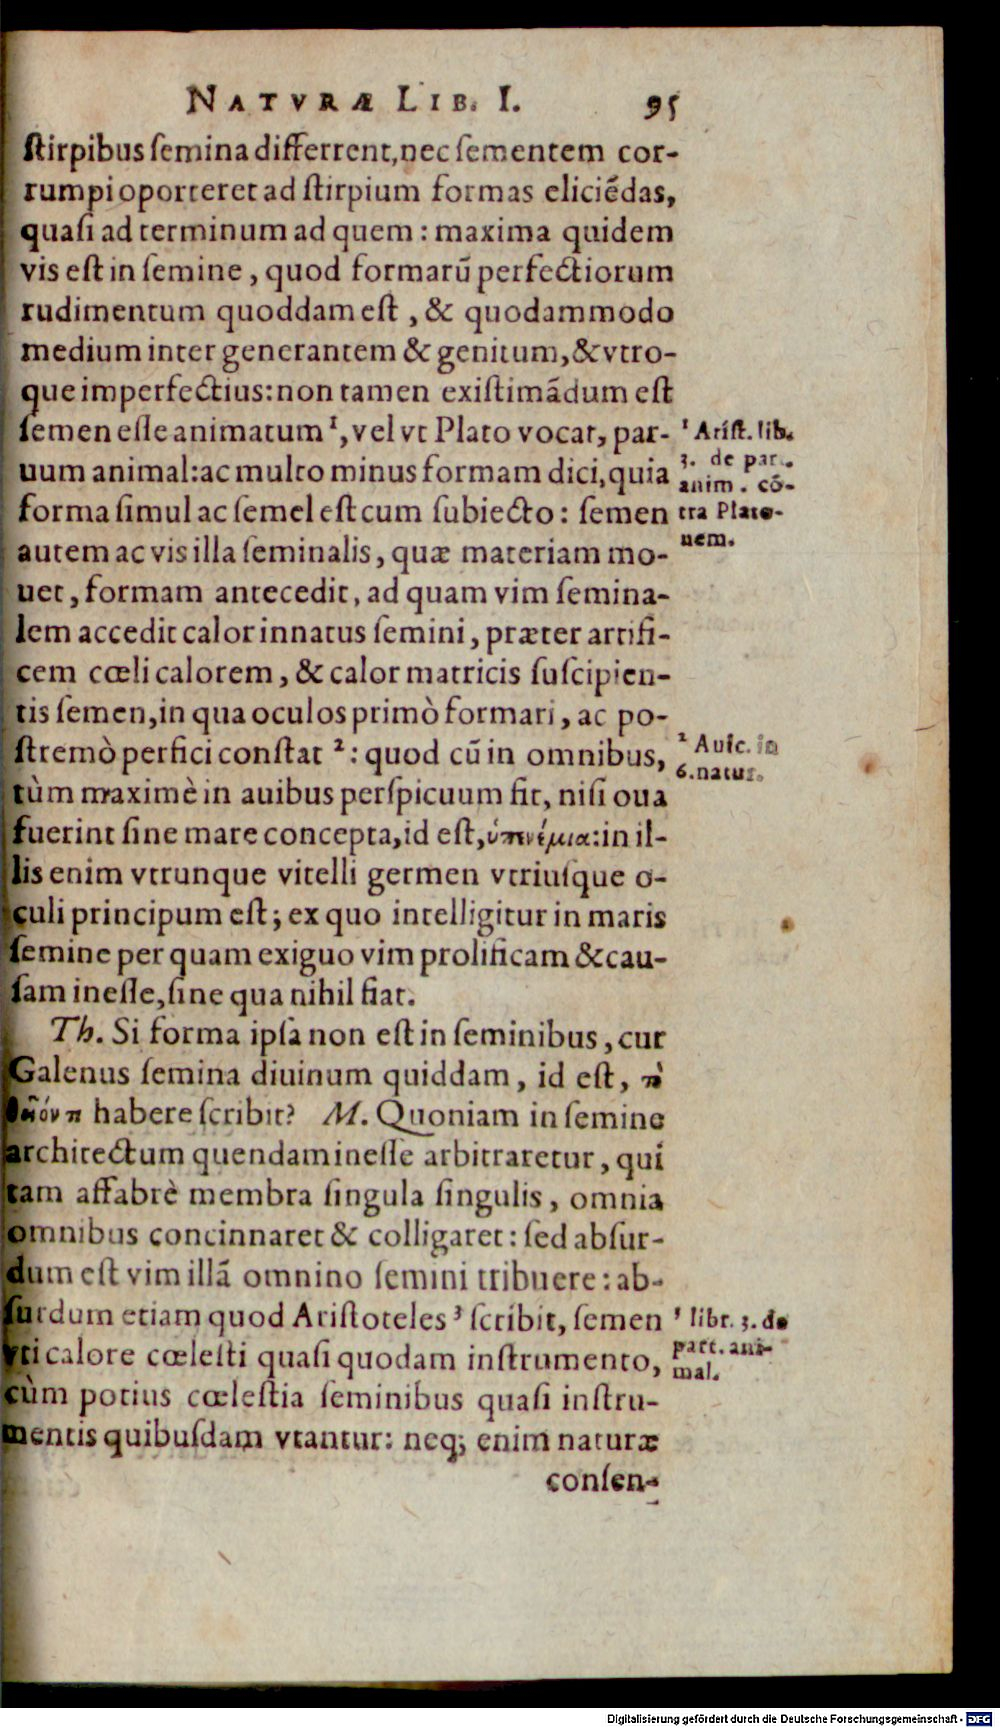 NATVRÆ LIB. I. 95
ſtirpibus ſemina differrent, nec ſementem cor-
rumpi oporteret ad ſtirpium formas eliciẽdas,
quaſi ad terminum ad quem : maxima quidem
vis eſt in ſemine , quod formarũ perfectiorum
rudimentum quoddam eſt , & quodammodo
medium inter generantem & genitum, & vtro-
que imperfectius: non tamen exiſtimãdum eſt
ſemen eſſe animatum ¹, vel vt Plato vocat, par-
uum animal: ac multo minus formam dici, quia
forma ſimul ac ſemel eſt cum ſubiecto : ſemen
autem ac vis illa ſeminalis , quæ materiam mo-
uet , formam antecedit, ad quam vim ſemina-
lem accedit calor innatus ſemini , præter artifi-
cem cœli calorem , & calor matricis ſuſcipien-
tis ſemen, in qua oculos primò formari , ac po-
ſtremò perfici conſtat ² : quod cũ in omnibus,
tùm maximè in auibus perſpicuum fit, niſi oua
fuerint ſine mare concepta, id eſt, ὑπηνέμια: in il-
lis enim vtrunque vitelli germen vtriuſque o-
culi principum eſt ; ex quo intelligitur in maris
ſemine per quam exiguo vim prolificam & cau-
ſam ineſſe, ſine qua nihil fiat.
Th. Si forma ipſa non eſt in ſeminibus , cur
Galenus ſemina diuinum quiddam , id eſt, τὸ
habere ſcribit? M. Quoniam in ſemine
architectum quendam ineſſe arbitraretur , qui
tam affabrè membra ſingula ſingulis , omnia
omnibus concinnaret & colligaret : ſed abſur-
dum eſt vim illã omnino ſemini tribuere : ab-
ſurdum etiam quod Ariſtoteles ³ ſcribit, ſemen
vti calore cœleſti quaſi quodam inſtrumento,
cùm potius cœleſtia ſeminibus quaſi inſtru-
mentis quibuſdam vtantur : neq; enim naturæ
conſen-
¹ Ariſt. lib.
3. de par.
anim . cõ-
tra Plato-
nem.
² Auic. in
6. natur.
³ libr. 3. de
part. ani-
mal.
Digitalisierung gefördert durch die Deutsche Forschungsgemeinschaft - DFG